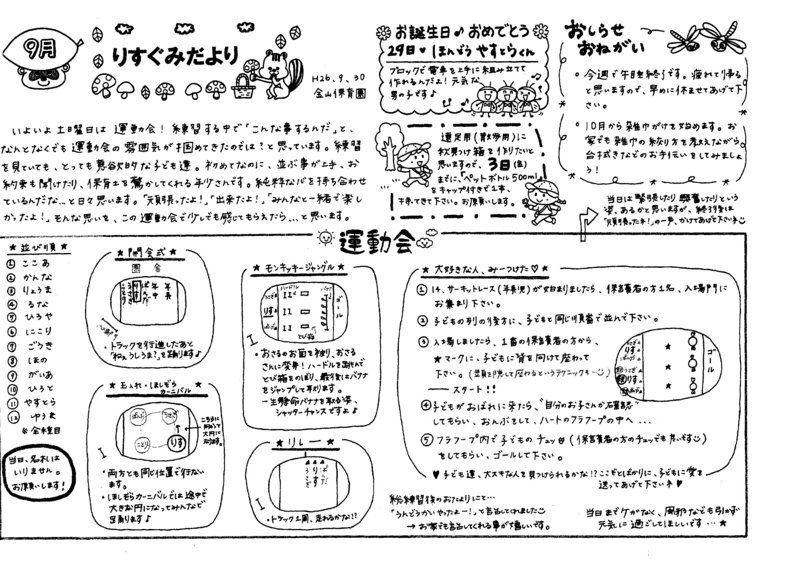 9月
りすぐみだより
H26.9.30
金山保育園
いよいよ土曜日は運動会！練習する中で「こんな事するんだ」と、
なんとなくでも運動会の雰囲気が
を見ていても、とっても
約束も聞けたり、保育士を驚かしてくれるチリさんです。純粋な心を持ち合わせ
ているんだな…と日々思います。「元気張ったよ！」「出来たよ！」「みんなと一緒で楽し
かったよ！」そんな思いを、この運動会で少しでも感じてもらえたら…と思います。
お誕生日♪おめでとう
29日♥ほんごう やすとらくん
ブロックで電車を上手に組み立てて
作れるんだよ！元気な
男の子です♪
還足用（散歩用）に
秋見つけ箱を作りたいと
思いますので、3日(金)
までに、『ペットボトル500ml』
をキャップ付きで1本、
子供てきて下さい。お願いします。
おしらせ
おねがい
今週で午睡終了です。疲れて帰る
と思いますので、早めに休ませてあげて下
さい。
10月から雑巾がけを始めます。お
家でも雑巾の絞り方を教えながら
台ふきなどのお手伝いをしてみましょ
う！
当日は緊張したり興奮したりという
姿、あるかと思いますが、終了後は
運動会
★並び順★
① ここあ
② かんな
③ りょうま
④ るな
⑤ ひろや
⑥ にこり
⑦ ごうき
⑧ ほの
⑨ がいあ
⑩ ひろと
⑪ やすとら
⑫ ゆうま
※全種目
当日、名札は
いりません。
お願いします！
★開会式★
園舎
・トラックを行進したあと
「和ぁうしうま！」を踊ります♪
★玉入れ・ほしぞら
カーニバル★
ぱんだ
うさぎ
ことり
りす
・両方とも同じ位置で行ない
ます。
・ほしぞらカーニバルでは途中で
大きな円になってみんなで
踊ります♪
★モンキッキージャングル★
ゴール
・おさるのお面を被り、おさる
さんに変身！ハードルを跳んで
とび箱をのぼり、最後にはバナナ
をジャンプして取ります。
一生懸命バナナを取る姿、
シャッターチャンスですよ♪
★リレー★
・トラック1周、走れるかな!?
★大好きな人、み～つけた♡★
① 14.サーキットレース(年長児)が始まりましたら、保護者の方1名、入場門に
お集まり下さい。
② 子どもの列の後方に、子どもと同じ順番で並んで下さい。
③ 入場しましたら、1番の保護者の方から、
★マークに、子どもに背を向けて座わって
下さい。
スタート！！
④ 子どもがおばれに来たら、“自分のお子さんか確認”
してもらい、おんぶをして、ハートのフラフープの中へ…
⑤ フラフープ内で子どものチェッ
をしてもらい、ゴールして下さい。
ゴール
♥子ども達、大スキな人を見つけられるかな!?ここぞとばかりに、子どもに愛を
送ってあげて下さいネ♥
総練習後のおたよりにて…
「うんどうかいやったよー！」
→お家でも言ってくれる事が嬉しいです。
当日までケガなく、周邦なども引かず
元気に過ごしてほしいです…★